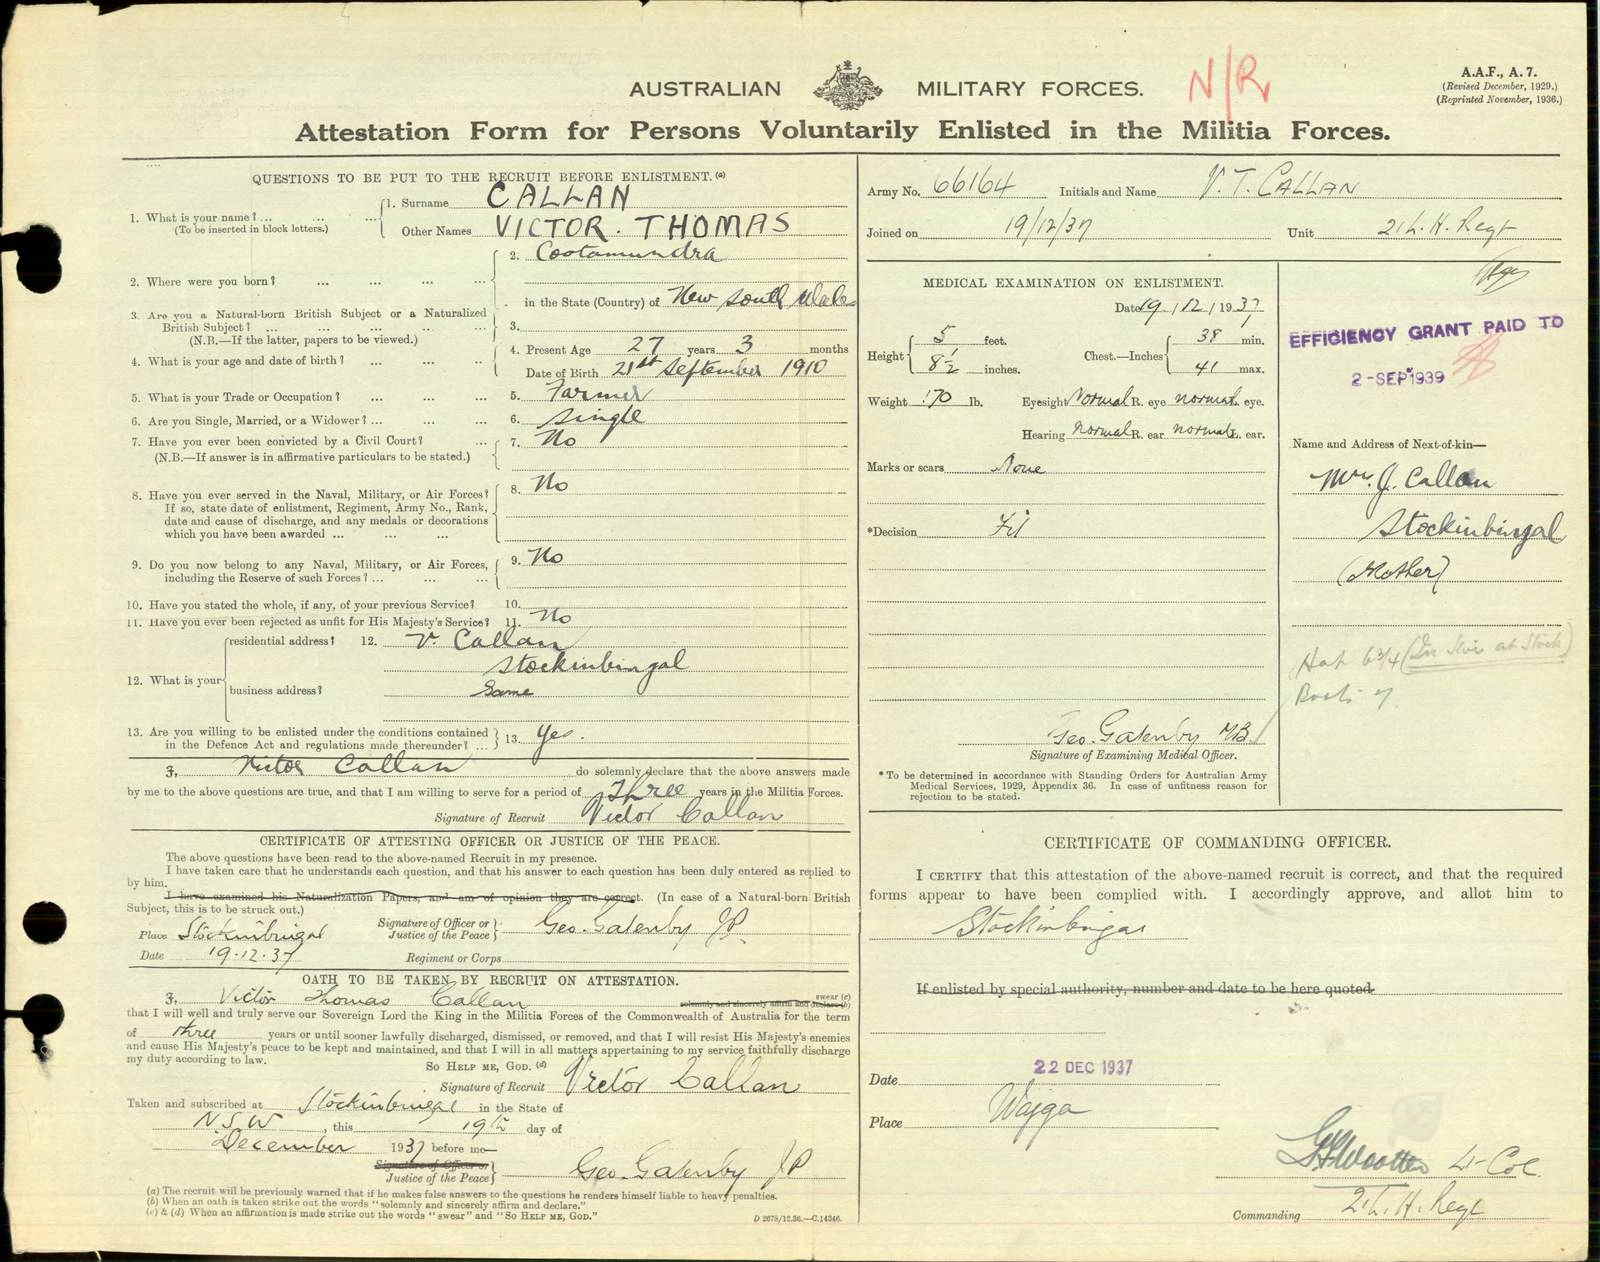 AUSTRALIAN MILITARY FORCES.
N/R
A.A.F., A. 7.
(Revised December, 1929.)
(Reprinted November, 1936.)
Attestation Form for Persons Voluntarily Enlisted in the Militia Forces.
QUESTIONS TO BE PUT TO THE RECRUIT BEFORE ENLISTMENT.(a)
1. What is your name? ... ... ... 1. Surname CALLAN
(To be inserted in block letters.) Other Names VICTOR. THOMAS
2. Where were you born? ... ... ... 2. Cootamundra
in the State (Country) of New South Wales
3. Are you a Natural-born British Subject or a Naturalized
British Subject? ... ... ... ... 3.
(N.B.—If the latter, papers to be viewed.)
4. What is your age and date of birth? ... ... 4. Present Age 27 years 3 months
Date of Birth 21st September 1910
5. What is your Trade or Occupation? ... ... ... 5. Farmer
6. Are you Single, Married, or a Widower? ... ... ... 6. Single
7. Have you ever been convicted by a Civil Court? ... 7. No
(N.B.—If answer is in affirmative particulars to be stated.)
8. Have you ever served in the Naval, Military, or Air Forces? 8. No
If so, state date of enlistment, Regiment, Army No., Rank,
date and cause of discharge, and any medals or decorations
which you have been awarded ... ... ...
9. Do you now belong to any Naval, Military, or Air Forces, 9. No
including the Reserve of such Forces? ... ... ...
10. Have you stated the whole, if any, of your previous Service? 10.
11. Have you ever been rejected as unfit for His Majesty's Service? 11. No
12. What is your residential address? 12. V. Callan
Stockinbingal
business address? Same
13. Are you willing to be enlisted under the conditions contained
in the Defence Act and regulations made thereunder? ... 13. Yes.
I, Victor Callan do solemnly declare that the above answers made
by me to the above questions are true, and that I am willing to serve for a period of Three years in the Militia Forces.
Signature of Recruit Victor Callan
CERTIFICATE OF ATTESTING OFFICER OR JUSTICE OF THE PEACE.
The above questions have been read to the above-named Recruit in my presence.
I have taken care that he understands each question, and that his answer to each question has been duly entered as replied to
by him.
I have examined his Naturalization Papers, and am of opinion they are correct. (In case of a Natural-born British
Subject, this is to be struck out.)
Signature of Officer or Justice of the Peace Geo. Gatenby JP.
Place Stockinbingal
Date 19.12.37 Regiment or Corps
OATH TO BE TAKEN BY RECRUIT ON ATTESTATION.
I, Victor Thomas Callan swear (c)
solemnly and sincerely affirm and declare (b)
that I will well and truly serve our Sovereign Lord the King in the Militia Forces of the Commonwealth of Australia for the term
of three years or until sooner lawfully discharged, dismissed, or removed, and that I will resist His Majesty's enemies
and cause His Majesty's peace to be kept and maintained, and that I will in all matters appertaining to my service faithfully discharge
my duty according to law.
SO HELP ME, GOD. (d)
Signature of Recruit Victor Callan
Taken and subscribed at Stockinbingal in the State of
N.S.W , this 19th day of
December 1937 before me—
Signature of Officer or
Justice of the Peace Geo. Gatenby JP
(a) The recruit will be previously warned that if he makes false answers to the questions he renders himself liable to heavy penalties.
(b) When an oath is taken strike out the words "solemnly and sincerely affirm and declare."
(c) & (d) When an affirmation is made strike out the words "swear" and "So HELP ME, GOD."
D 2678/12.36.—C.14346.
Army No. 66164 Initials and Name V. T. CALLAN
Joined on 19/12/37 Unit 21 L. H. Regt
MEDICAL EXAMINATION ON ENLISTMENT.
Date 19 / 12 / 1937
Height 5 feet. 8½ inches.
Chest.—Inches 38 min. 41 max.
Weight 170 lb. Eyesight Normal R. eye normal L. eye.
Hearing Normal R. ear normal L. ear.
Marks or scars None
*Decision Fit
Geo. Gatenby MB
Signature of Examining Medical Officer.
* To be determined in accordance with Standing Orders for Australian Army
Medical Services, 1929, Appendix 36. In case of unfitness reason for
rejection to be stated.
EFFICIENCY GRANT PAID TO
2 - SEP 1939
Name and Address of Next-of-kin—
Mrs. J. Callan
Stockinbingal
(Mother)
Hat 6¾ at Stock)
Boots 7
CERTIFICATE OF COMMANDING OFFICER.
I CERTIFY that this attestation of the above-named recruit is correct, and that the required
forms appear to have been complied with. I accordingly approve, and allot him to
Stockinbingal
If enlisted by special authority, number and date to be here quoted.
Date 22 DEC 1937
Place Wagga
G F Wootten Lt Col.
Commanding 21 L. H. Regt